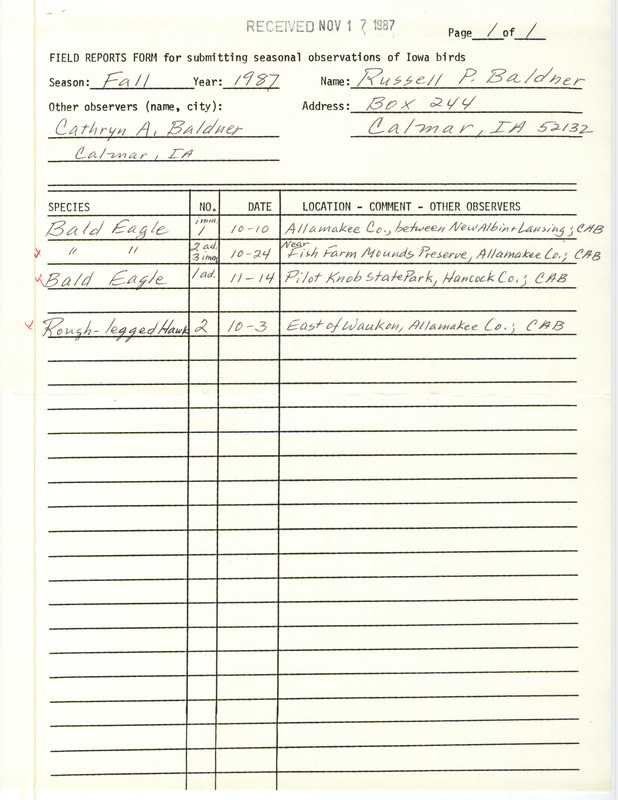 RECEIVED NOV 17 1987
Page 1 of 1
FIELD REPORTS FORM for submitting seasonal observations of Iowa birds
Season: Fall Year: 1987 Name: Russell P. Baldner
Other observers (name, city): Address: Box 244
Cathryn A. Baldner Calmar, IA 52132
Calmar, IA
SPECIES NO. DATE LOCATION - COMMENT - OTHER OBSERVERS
Bald Eagle 1 imm. 10-10 Allamakee Co., between New Albin + Lansing; CAB
" " 2 ad. 3 imm 10-24 Near Fish Farm Mounds Preserve, Allamakee Co.; CAB
Bald Eagle 1 ad. 11-14 Pilot Knob State Park, Hancock Co.; CAB
Rough-legged Hawk 2 10-3 East of Waukon, Allamakee Co.; CAB